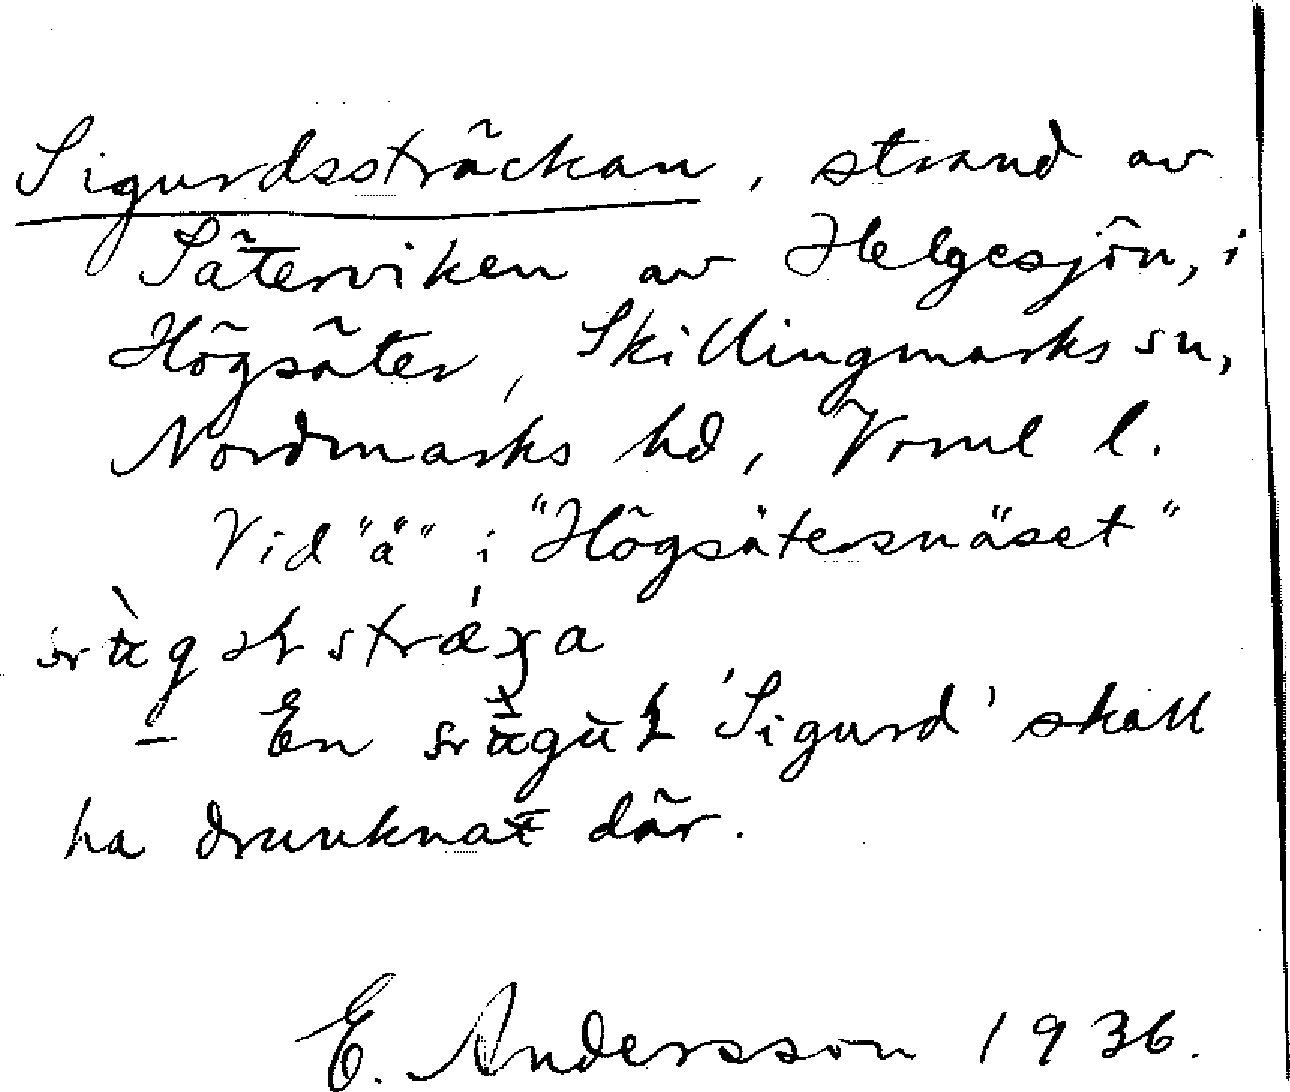 Sigurdssträckan, strand av
Säterviken av Helgesjön, i
Högsäter, Skillingmarks sn,
Nordmarks hd, Vrml l.
Vid "ä" i "Högsätersnäset"
– En 'Sigurd' skall
ha drunknat där.
E. Andersson 1936.